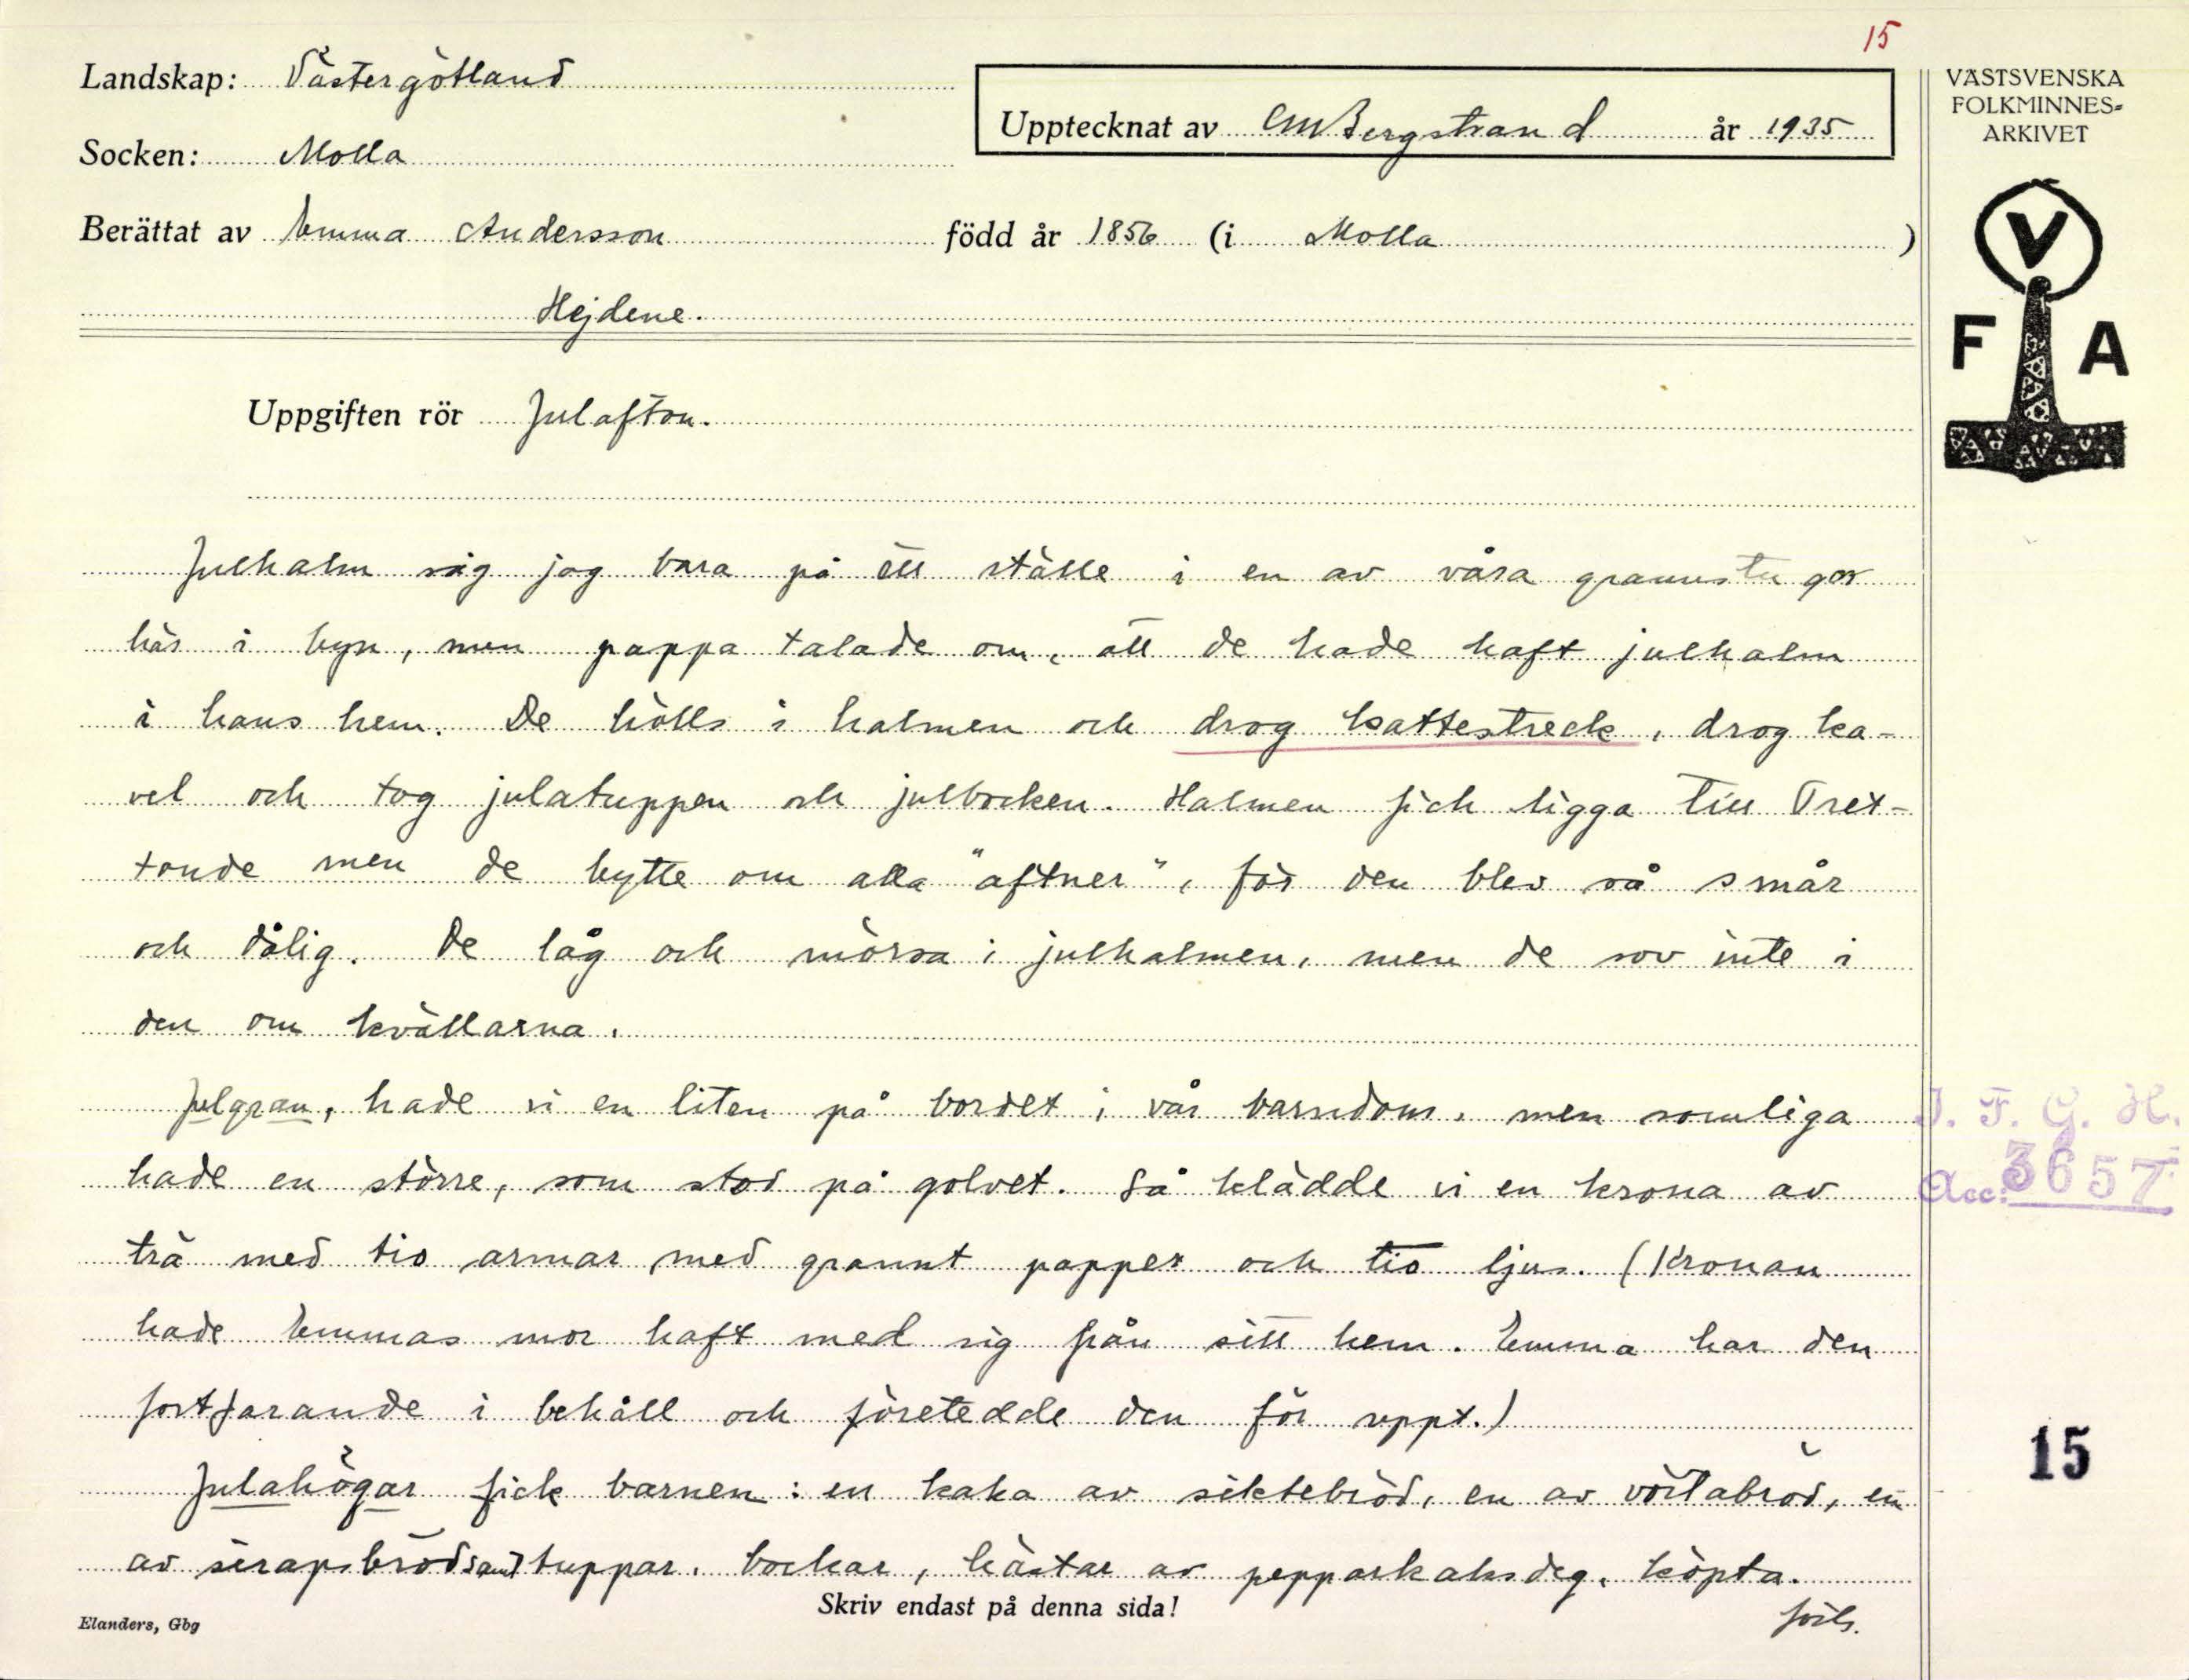 15
Landskap: Västergötland
Socken: Molla
Upptecknat av CM Bergstrand år 1935
Berättat av Emma Andersson född år 1856 (i Molla )
Hejdene.
Uppgiften rör Julafton.
VÄSTSVENSKA
FOLKMINNES-
ARKIVET
V
F A
Julhalm såg jag bara på ett ställe i en av våra grannstugor
här i byn, men pappa talade om, att de hade haft julhalm
i hans hem. De hölls i halmen och drog kattestreck, drog ka-
vel och tog julatuppen och julbocken. Halmen fick ligga till Tret-
tonde men de bytte om alla "aftner", för den blev så smår
och dålig. De låg och mörsa i julhalmen, men de sov inte i
den om kvällarna.
Julgran, hade vi en liten på bordet i vår barndom, men somliga
hade en större, som stod på golvet. Så klädde vi en krona av
trä med tio armar med grannt papper och tio ljus. (Kronan
hade Emmas mor haft med sig från sitt hem. Emma har den
fortfarande i behåll och företedde den för uppt.)
Julahögar fick barnen: en kaka av siktebröd, en av vörtabröd, en
av sirapsbröd samt tuppar, bockar, hästar av pepparkaksdeg, köpta.
forts.
I. F. G. H.
Acc: 3657
15
Skriv endast på denna sida!
Elanders, Gbg